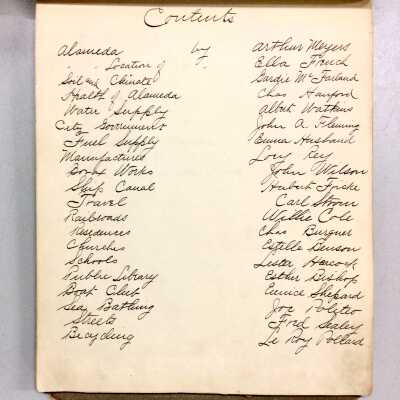 Contents
Alameda by Arthur Meyers
" " Location of ". Ella French
Soil and Climate Gardie McFarland
Health of Alameda Chas Hanford
Water Supply Albert Watkins
City Government John A. Fleming
Fuel Supply Emma Husband
Manufactures Roy
Borax Works John Wilson
Ship Canal Hubert Fricke
Travel Carl Strom
Railroads Willie Cole
Residences Chas Burgner
Churches Estelle Benson
Schools Lester Hancock
Public Library Esther Bishop
Boat Club Eunice Shepard
Sea Bathing Joe Politeo
Streets Fred Sealey
Bicycling Le Roy Pollard